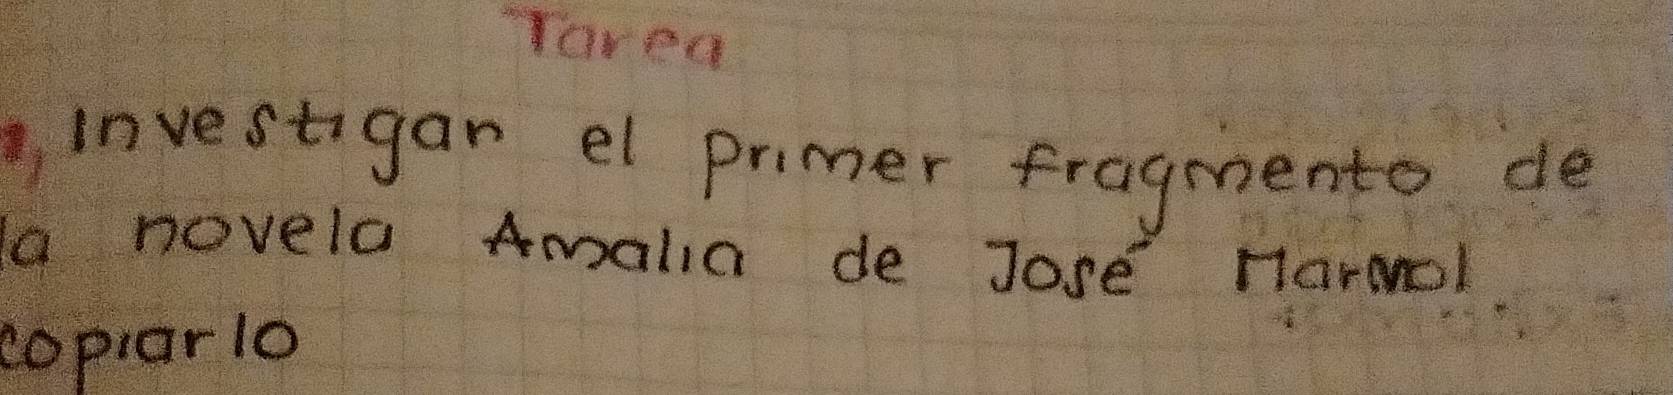 Tarea
1, Investigar el primer fragmento de
la novela Amalia de José Marmol
copiarlo